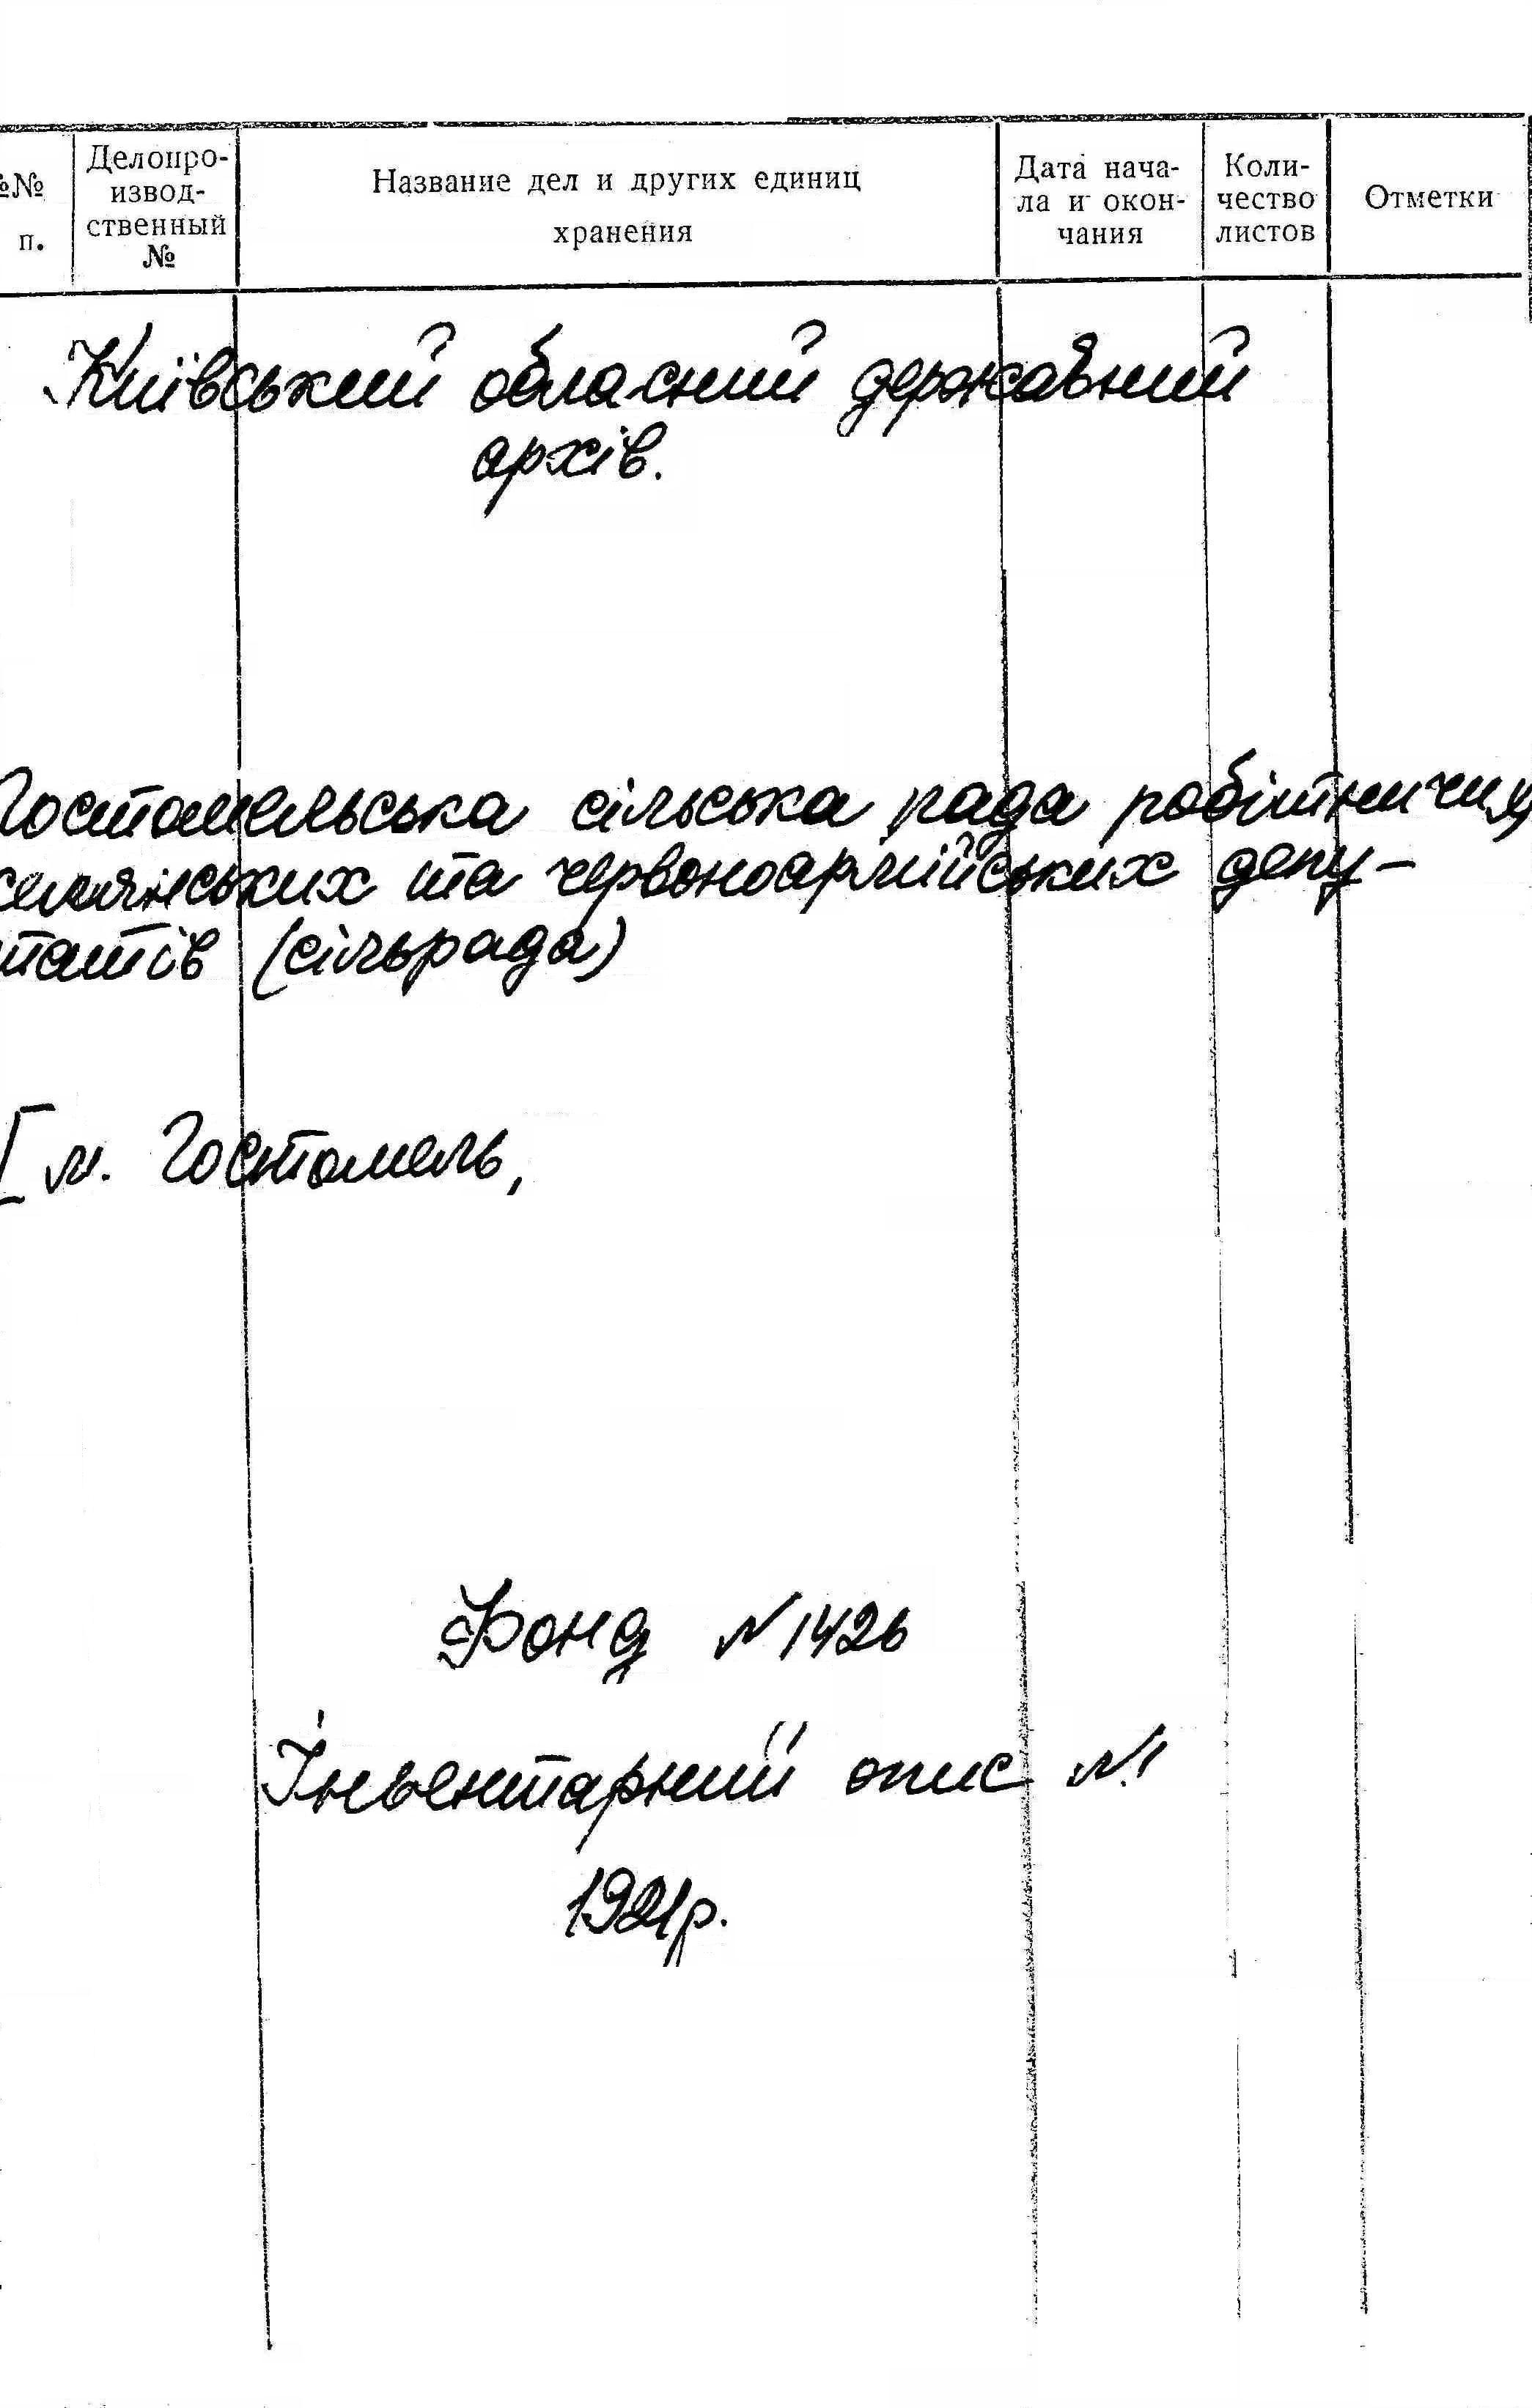 №№ п.
Делопро-
извод-
ственный
№
Название дел и других единиц
хранения
Дата нача-
ла и окон-
чания
Коли-
чество
листов
Отметки
Київський обласний державний
архів.
Гостомельська сільська рада робітничих,
селянських та червоноармійських депу-
татів (сільрада)
[м. Гостомель,
Фонд №1426
Інвентарний опис №1
1921р.